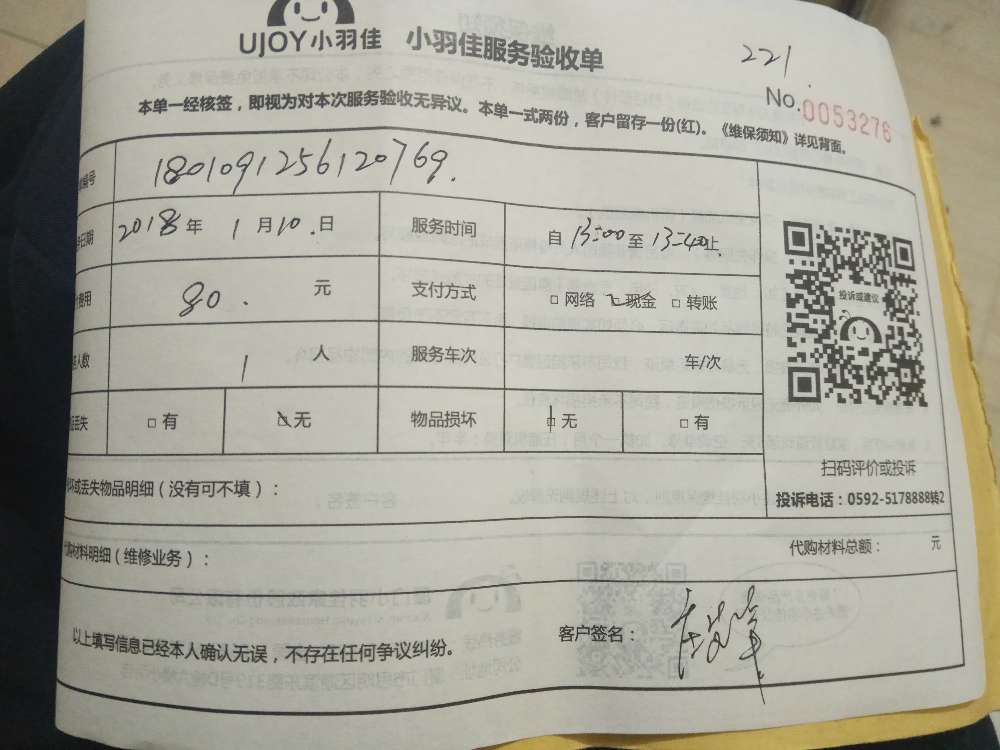 UJOY小羽佳 小羽佳服务验收单
221
No.0053276
本单一经核签，即视为对本次服务验收无异议。本单一式两份，客户留存一份(红)。《维保须知》详见背面。
编号 1801091256120769.
日期 2018年 1月10.日 服务时间 自 13:00 至 13:40止
费用 80. 元 支付方式 □ 网络 □ 现金 □ 转账
人数 1 人 服务车次 车/次
丢失 □ 有 □ 无 物品损坏 □ 无 □ 有
投诉或建议
扫码评价或投诉
投诉电话：0592-5178888转2
坏或丢失物品明细（没有可不填）：
代购材料明细（维修业务）：
代购材料总额： 元
以上填写信息已经本人确认无误，不存在任何争议纠纷。 客户签名：